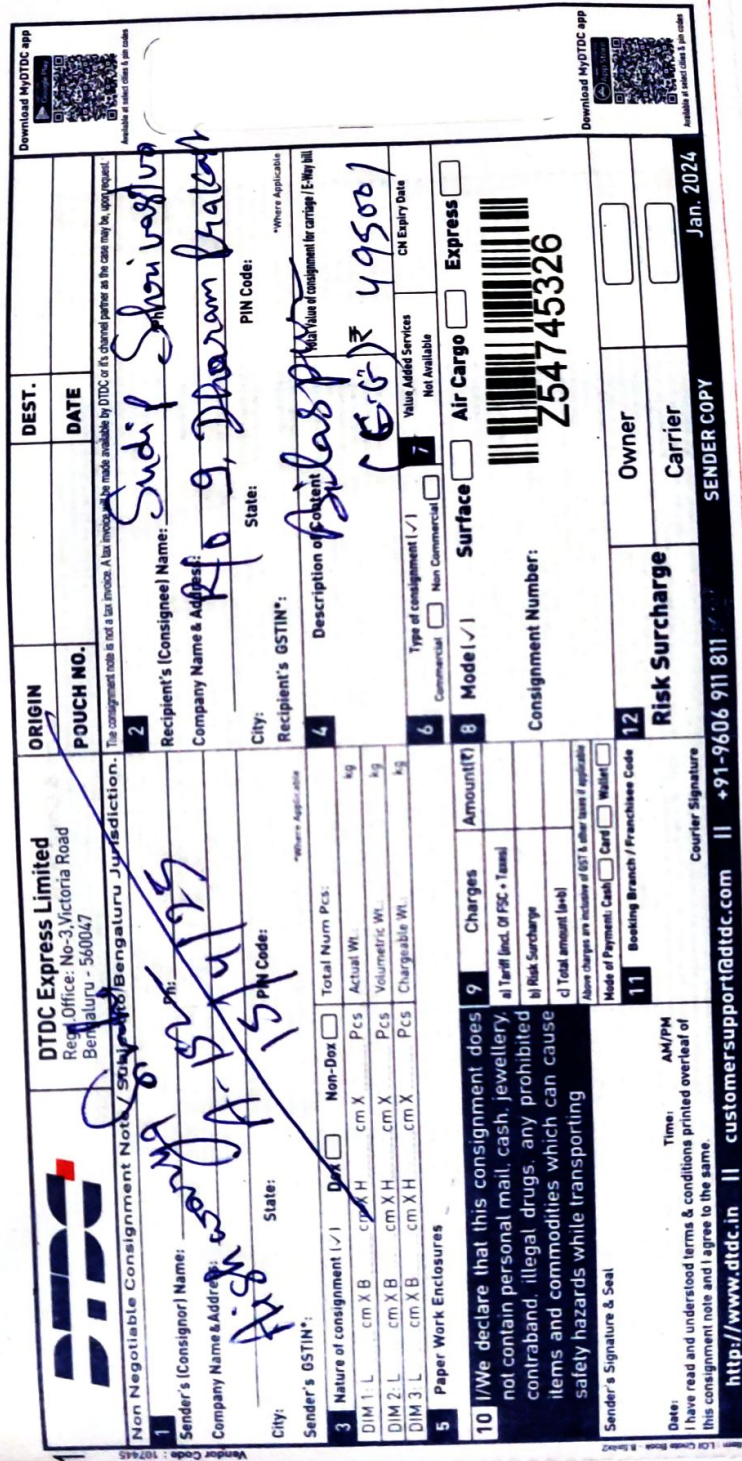 DTDC
DTDC Express Limited
Regd. Office: No-3, Victoria Road
Bengaluru - 560047
ORIGIN
DEST.
POUCH NO.
DATE
Download MyDTDC app
Google Play
Available at select cities & pin codes
Non Negotiable Consignment Note / Subject to Bengaluru Jurisdiction.
The consignment note is not a tax invoice. A tax invoice will be made available by DTDC or it's channel partner as the case may be, upon request.
1
Sender's (Consignor) Name:
Ph:
Company Name & Address:
A-152
15/4/25
City:
State:
PIN Code:
Sender's GSTIN*:
*Where Applicable
2
Recipient's (Consignee) Name: Sudip Shrivastva
Company Name & Address: R/o 9, Dharam Prakash
City:
State:
PIN Code:
Recipient's GSTIN*:
*Where Applicable
Bilaspur
(C.G.) 495001
3 Nature of consignment (✓) Dox Non-Dox Total Num Pcs:
DIM 1: L cm X B cm X H cm X Pcs Actual Wt.: kg
DIM 2: L cm X B cm X H cm X Pcs Volumetric Wt.: kg
DIM 3: L cm X B cm X H cm X Pcs Chargeable Wt.: kg
4 Description of Content
Total Value of consignment for carriage / E-Way bill
₹
5 Paper Work Enclosures
6 Type of consignment (✓)
Commercial Non Commercial
7 Value Added Services
Not Available
CN Expiry Date
8 Mode (✓) Surface Air Cargo Express
Consignment Number:
Z54745326
9 Charges Amount(₹)
a) Tariff (incl. Of FSC + Taxes)
b) Risk Surcharge
c) Total amount (a+b)
Above charges are inclusive of GST & other taxes if applicable
Mode of Payment: Cash Card Wallet
10 I/We declare that this consignment does
not contain personal mail, cash, jewellery,
contraband, illegal drugs, any prohibited
items and commodities which can cause
safety hazards while transporting
Sender's Signature & Seal
Date: Time: AM/PM
I have read and understood terms & conditions printed overleaf of
this consignment note and I agree to the same.
11 Booking Branch / Franchisee Code
Courier Signature
12
Risk Surcharge
Owner
Carrier
Download MyDTDC app
App Store
Available at select cities & pin codes
http://www.dtdc.in || customersupport@dtdc.com || +91-9606 911 811
SENDER COPY
Jan. 2024
Vendor Code : 107445